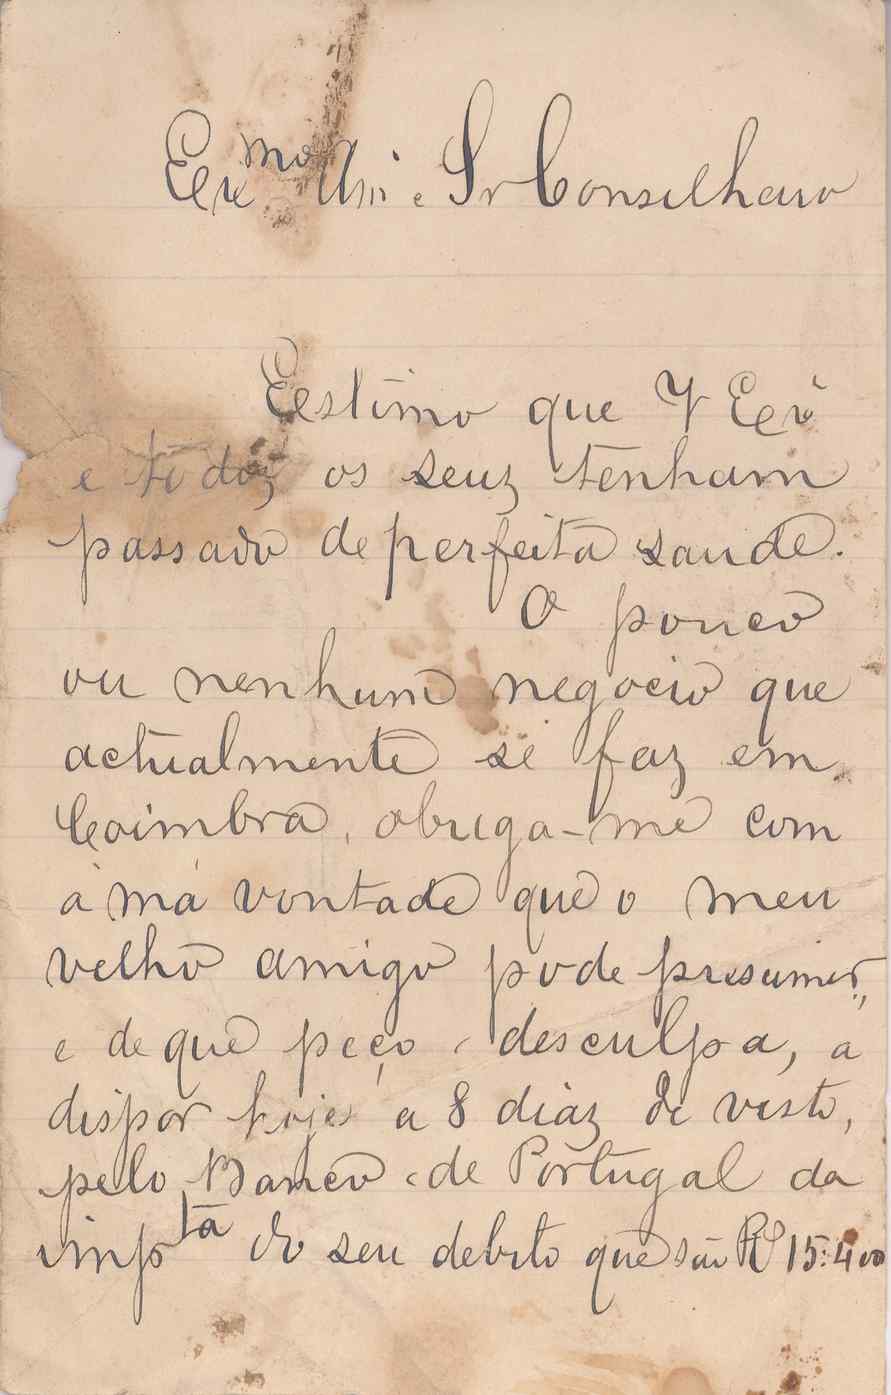 Exmo Am. e Sr Conselheiro
Estimo que V Exª
e todoz os seuz tenham
passado de perfeita saude.
O pouco
ou nenhum negocio que
actualmente se faz em
Coimbra, obriga-me com
a má vontade que o meu
velho amigo pode presumir,
e de que peço desculpa, a
dispor hoje a 8 diaz de visto,
pelo Banco de Portugal da
imptª do seu debito que são Rs 15:400